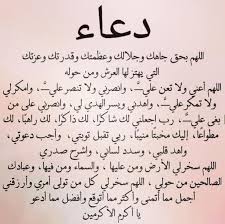 دعاء
اللهم بحق جاهك وجلالك وعظمتك وقدرتك وعزتك
التي يهتز لها العرش ومن حوله
اللهم أعني ولا تعن عليَّ، وانصرني ولا تنصر عليَّ، وامكر لي
ولا تمكر عليَّ، واهدني ويسر الهدي لي، وانصرني على من
بغى عليَّ، رب اجعلني لك شاكرًا، لك ذاكرًا، لك راهبًا، لك
مطواعًا، إليك مخبتًا منيبًا، ربي تقبل توبتي، وأجب دعوتي،
واهد قلبي، وسدد لساني، واشرح صدري
اللهم سخر لي الأرض ومن عليها ، والسماء ومن فيها، وعبادك
الصالحين من حولي ، اللهم سخر لي كل من تولى أمري وأرزقني
أجمل مما أتمنى وأكثر مما أتوقع وأفضل مما أدعو
يا أكرم الأكرمين